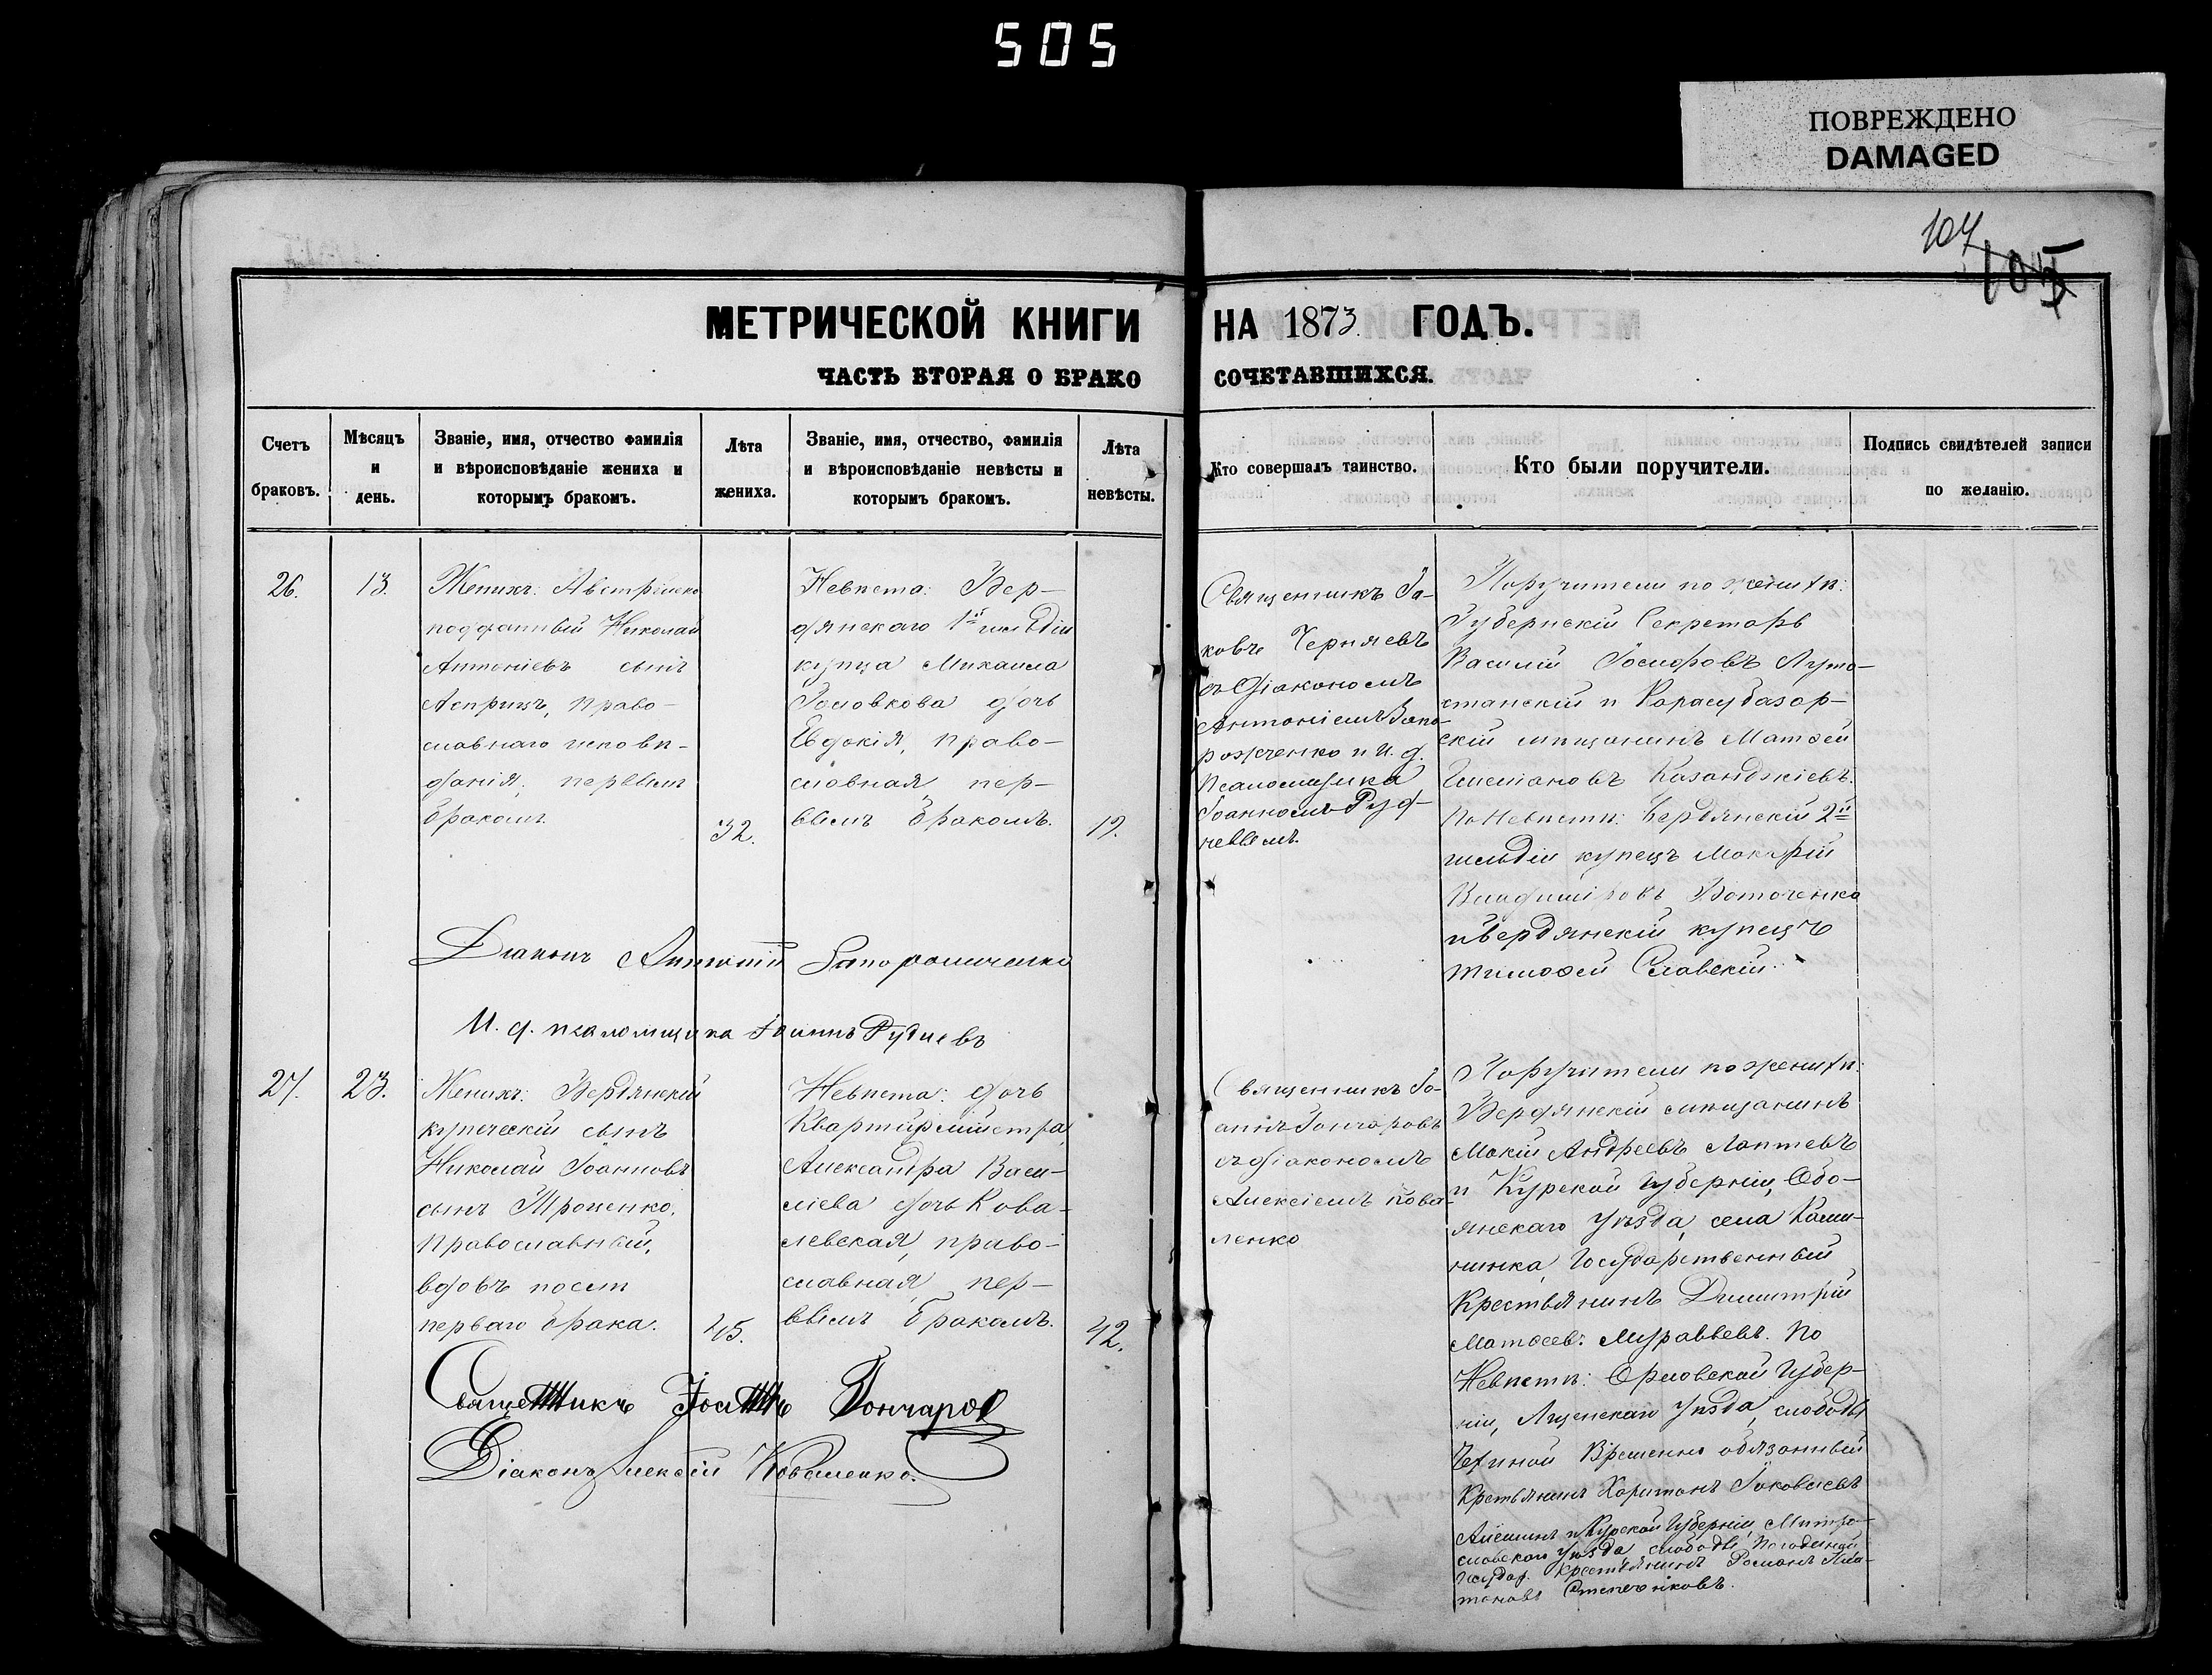 505
ПОВРЕЖДЕНО
DAMAGED
107
МЕТРИЧЕСКОЙ КНИГИ НА 1873 ГОДЪ.
ЧАСТЬ ВТОРАЯ О БРАКО СОЧЕТАВШИХСЯ.
Счетъ браковъ.
Мѣсяцъ и день.
Званіе, имя, отчество фамилія
и вѣроисповѣданіе жениха и
которымъ бракомъ.
Лѣта жениха.
Званіе, имя, отчество, фамилія
и вѣроисповѣданіе невѣсты и
которымъ бракомъ.
Лѣта невѣсты.
Кто совершалъ таинство.
Кто были поручители.
Подпись свидѣтелей записи
по желанію.
26.
13.
Женихъ: Австрійско
подданный Николай
Антоніевъ сынъ
православнаго исповѣ-
данія, первымъ
бракомъ.
32.
Невѣста: Бер-
дянскаго 1й гильдіи
купца Михаила
Головкова дочь
Евдокія, право-
славная, пер-
вымъ бракомъ.
19.
Священникъ Іа-
ковъ Черняевъ
съ Діакономъ
Антоніемъ Запо-
рожченко и И. д.
Псаломщика
Іоанномъ Руд-
невымъ.
Поручители по женихѣ:
Губернскій Секретарь
Василій Іосифовъ
и Карасубазар-
скій мѣщанинъ Матѳей
Казанджіевъ.
По Невѣстѣ: Бердянскій 2й
гильдіи купецъ
Владиміровъ
и Бердянскій купецъ
Тимоѳей Славскій.
Діаконъ Антоній Запорожченко
И. д. псаломщика Іоаннъ Рудневъ
27.
23.
Женихъ: Бердянскій
купеческій сынъ
Николай Іоанновъ
сынъ Троценко,
Православный,
вдовъ послѣ
перваго брака.
45.
Невѣста: дочь
Квартирмистра
Александра Васи-
ліева дочь Кова-
левская, право-
славная, пер-
вымъ бракомъ.
42.
Священникъ Іо-
аннъ Гончаровъ
съ діакономъ
Алексіемъ Кова-
ленко
Поручители по женихѣ:
Бердянскій мѣщанинъ
Мокій Андреевъ Лаптевъ
и Курской Губерніи, Обо-
янскаго уѣзда, села
Государственный
Крестьянинъ Димитрій
Матѳеевъ Муравьевъ. По
Невѣстѣ: Орловской Губер-
ніи, уѣзда, слободы
Временно обязанный
Крестьянинъ Харитонъ Іаковлевъ
Алешинъ и Курской Губерніи,
уѣзда слободы
Государ. Крестьянинъ Романъ Пла-
тоновъ
Священникъ Іоаннъ Гончаровъ
Діаконъ Алексій Коваленко.